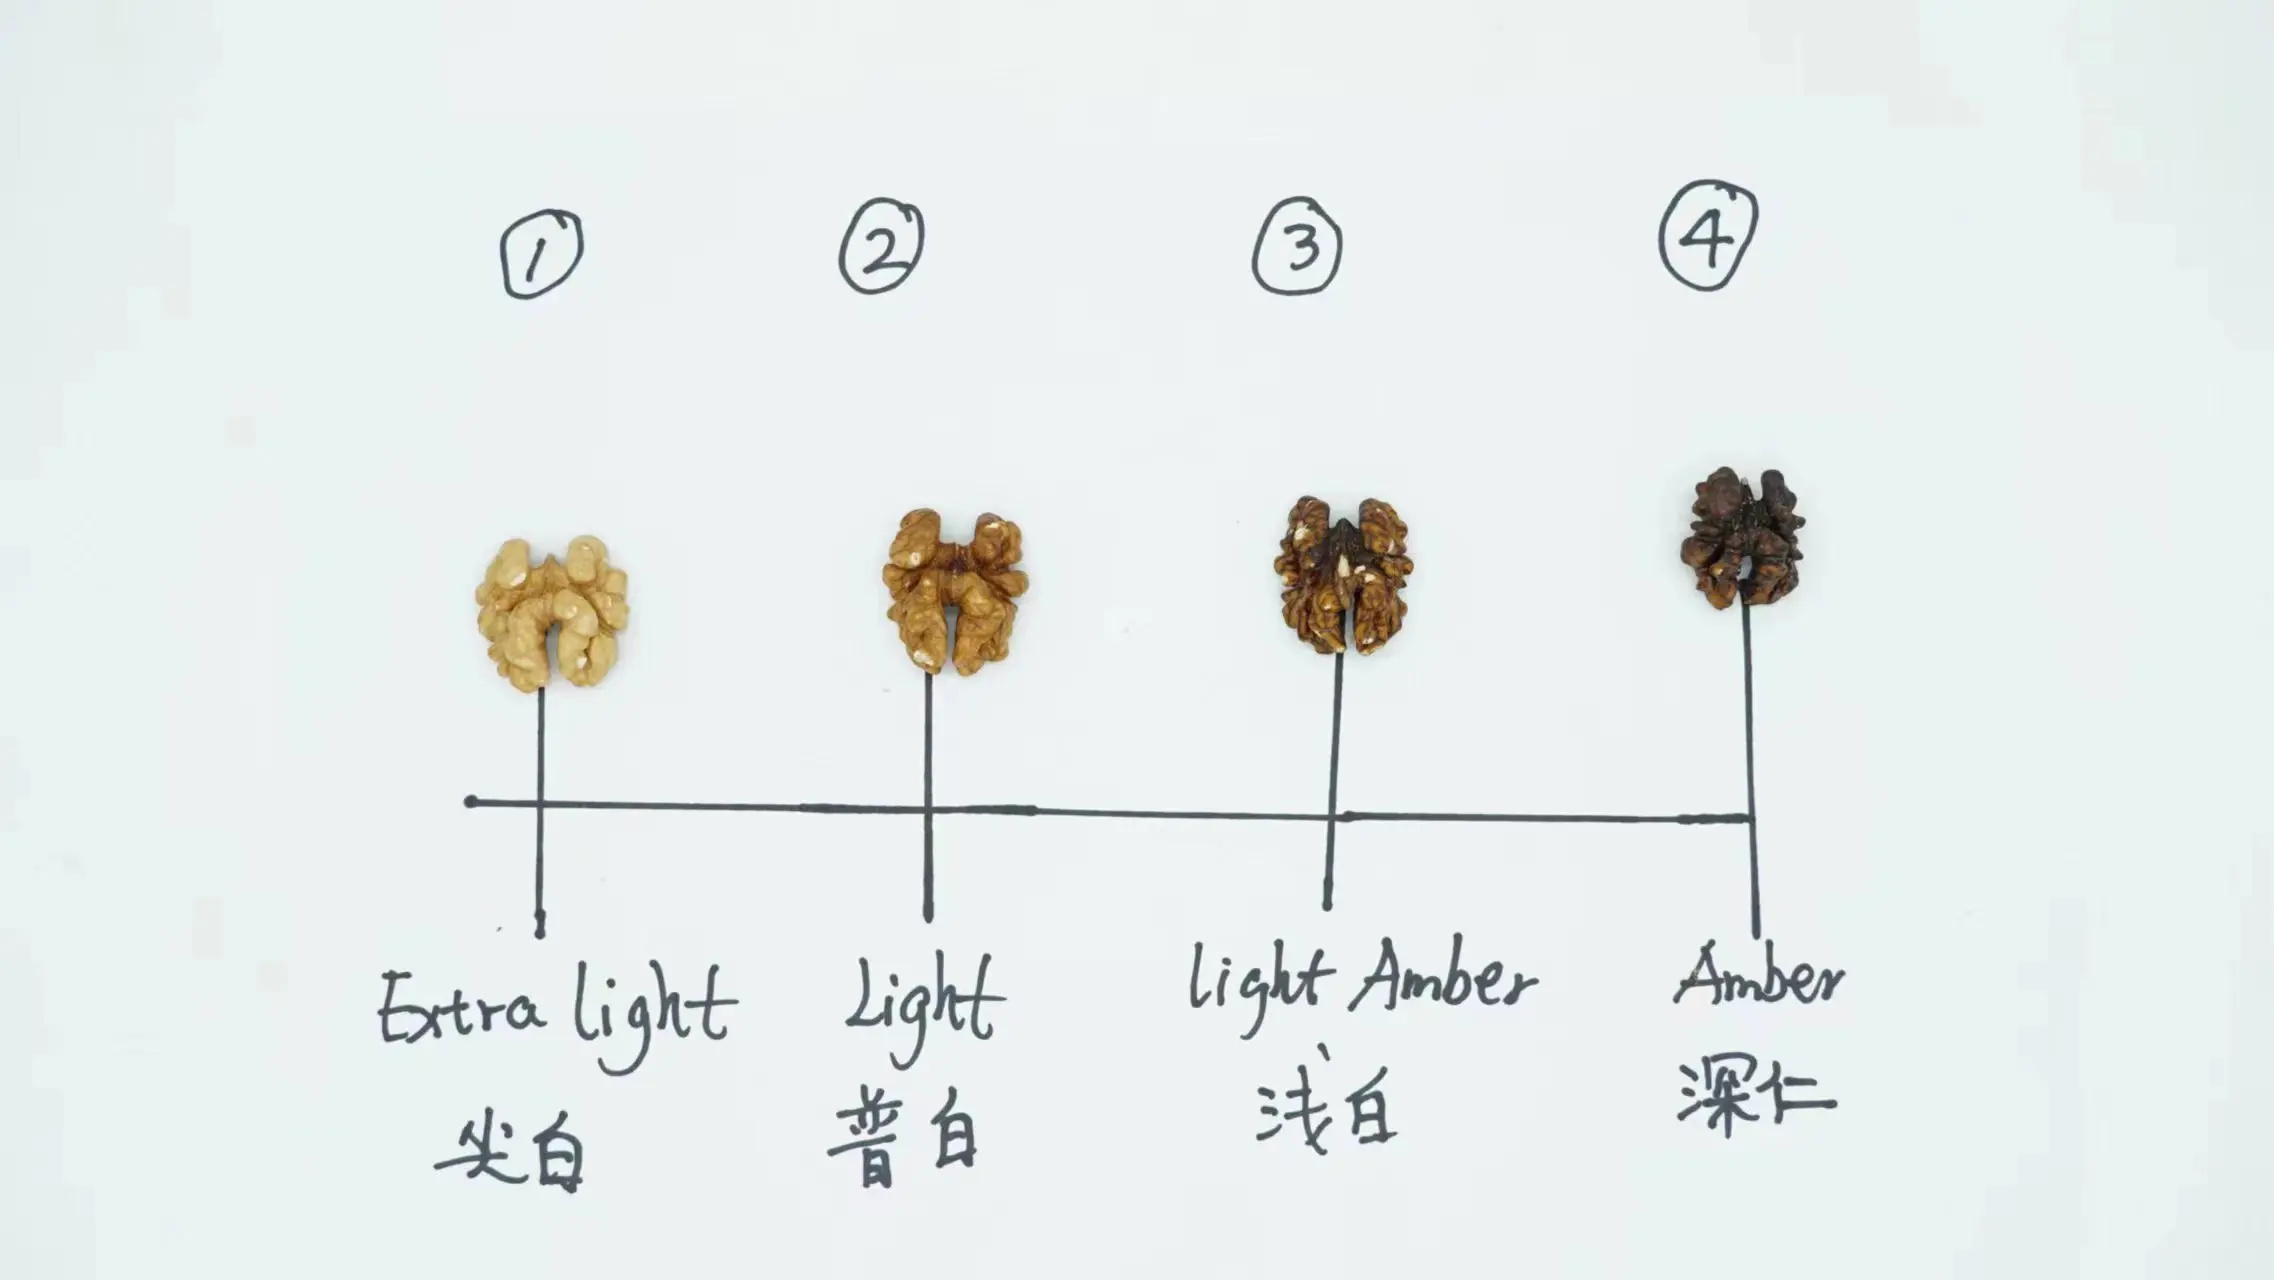 ① ② ③ ④
Extra light Light light Amber Amber
尖白 普白 浅白 深仁